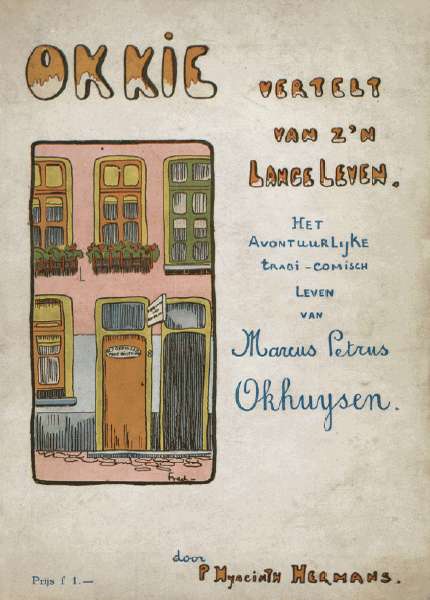 OKKIE
VERTELT
VAN Z'N
LANGE LEVEN.
HET
AVONTUURLIJKE
TRAGI-COMISCH
LEVEN
VAN
Marcus Petrus
Okhuysen.
8
Fred-
door
P HYACINTH HERMANS.
Prijs f 1.—